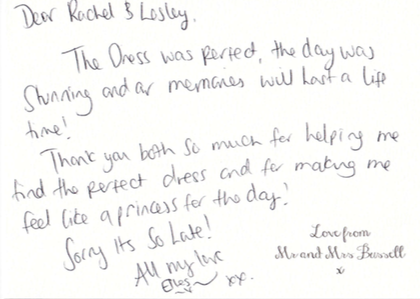 Dear Rachel & Lesley,
The Dress was perfect, the day was
stunning and our memories will last a life
time!
Thank you both so much for helping me
find the perfect dress and for making me
feel like a princess for the day!
Sorry Its So Late!
All my love
xx.
Love from
Mr and Mrs Bussell
x